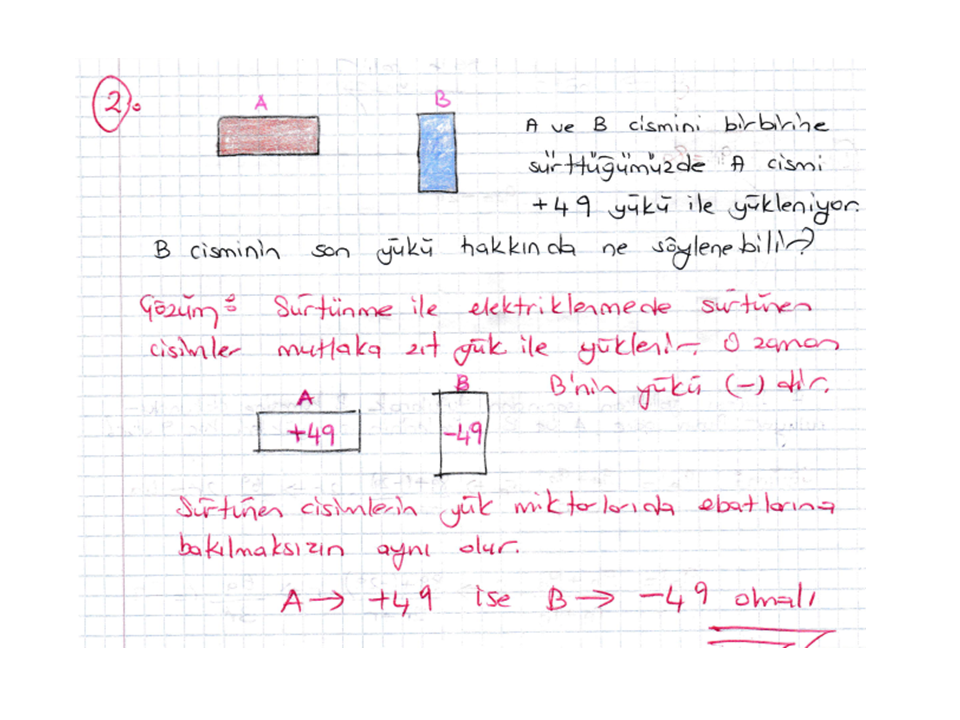 2.
A
B
A ve B cismini birbirine
sürttüğümüzde A cismi
+49 yükü ile yükleniyor.
B cisminin son yükü hakkında ne söylenebilir?
Çözüm: Sürtünme ile elektriklenmede sürtünen
cisimler mutlaka zıt yük ile yüklenir. O zaman
B'nin yükü (-) dir.
A
B
+49
-49
Sürtünen cisimlerin yük miktarlarıda ebatlarına
bakılmaksızın aynı olur.
A→ +49 ise B→ -49 olmalı